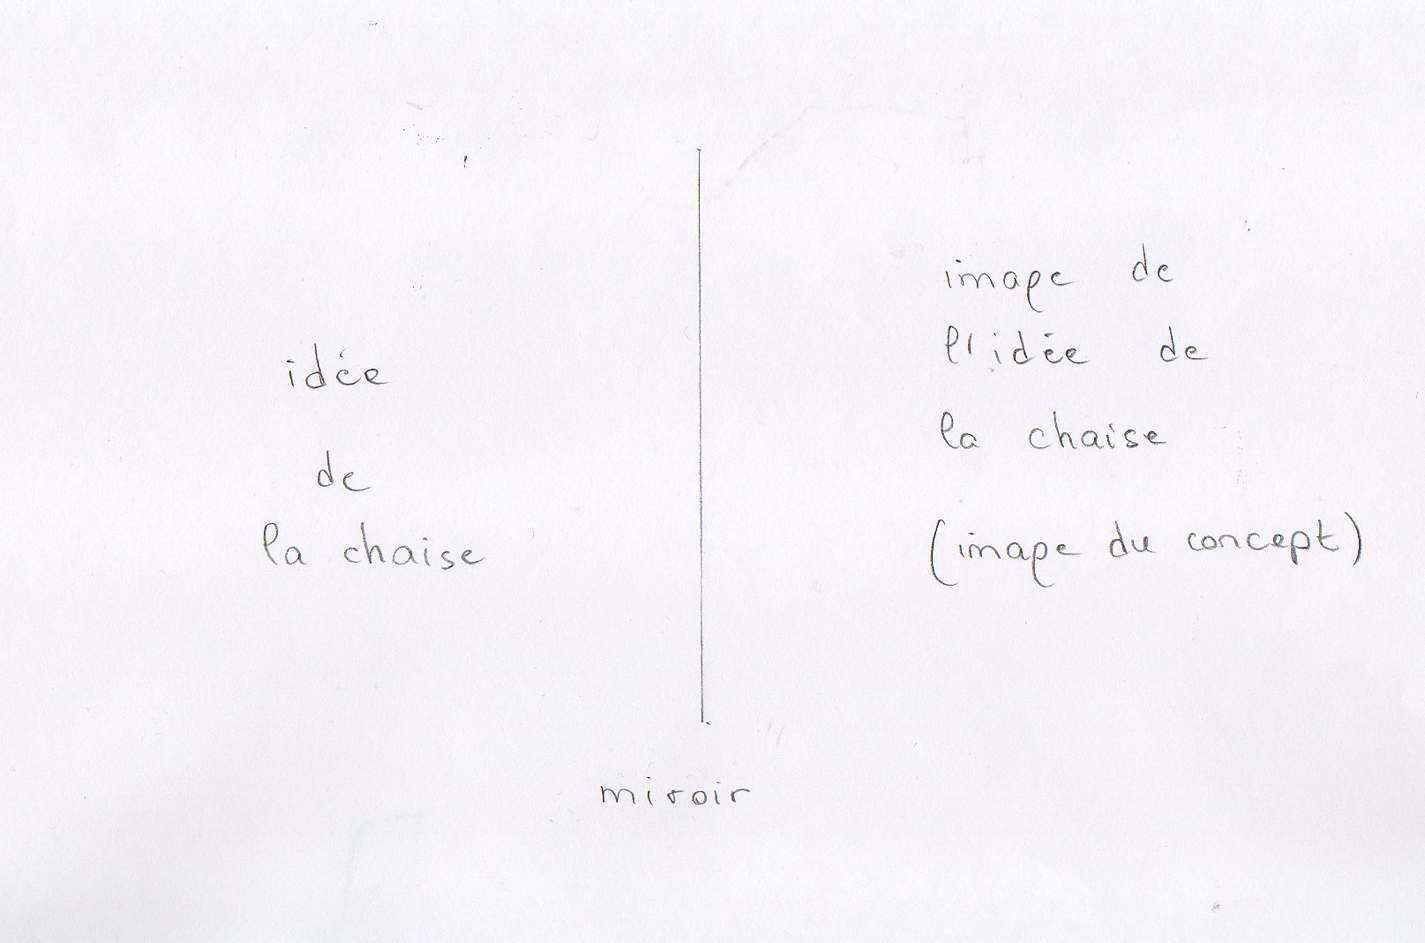 idée
de
la chaise
image de
l'idée de
la chaise
(image du concept)
miroir